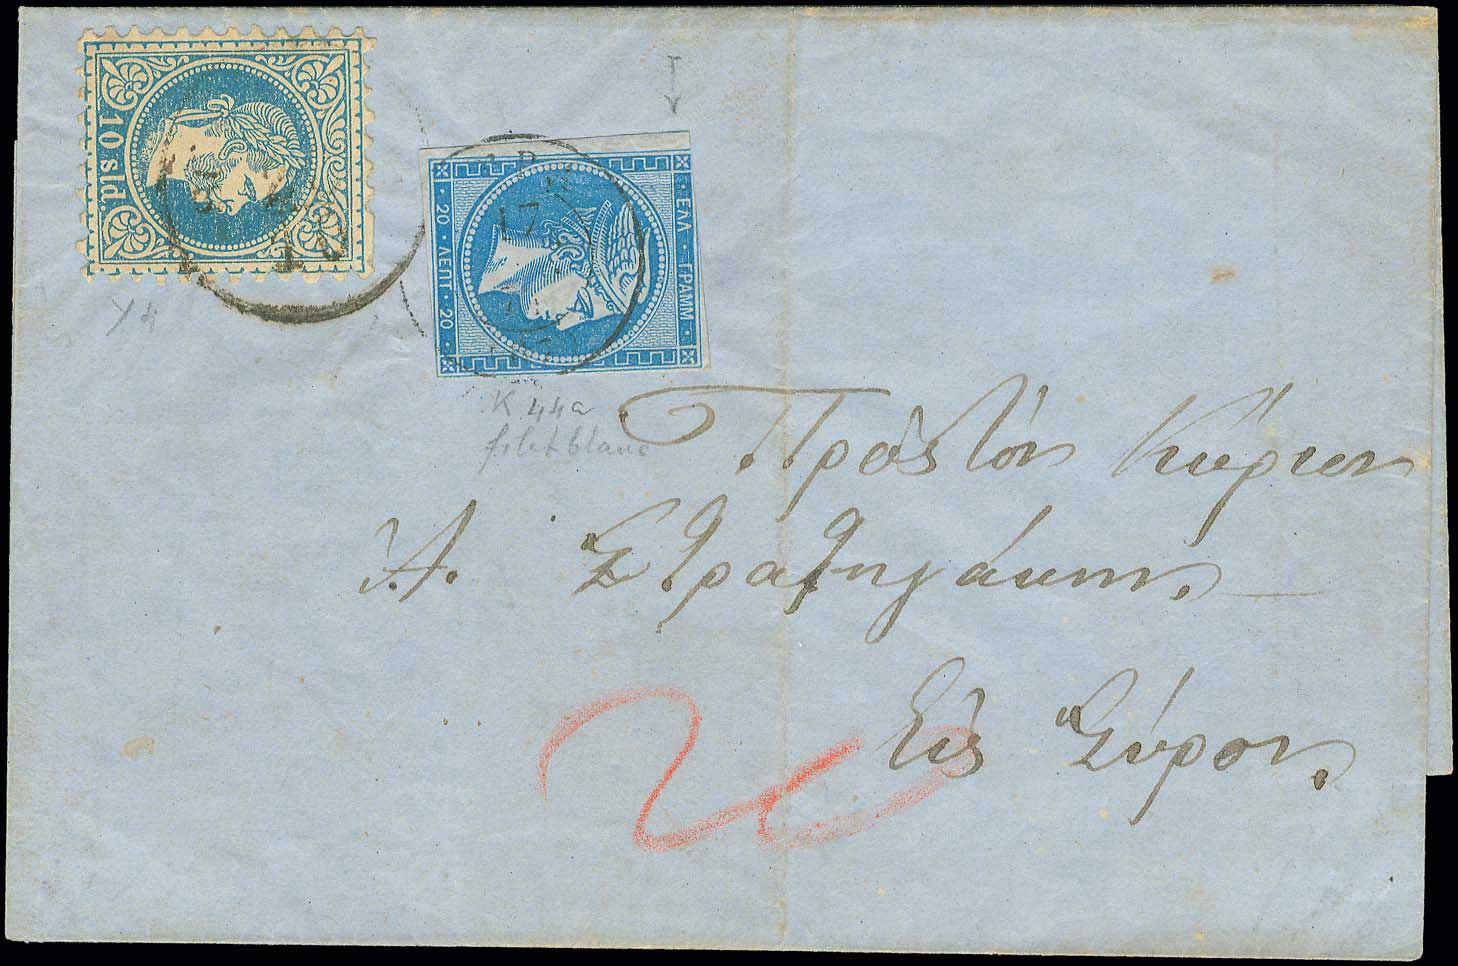 10 sld.
ΕΛΛ · ΓΡΑΜΜ ·
20 · ΛΕΠΤ · 20
17
K 44a
filet blanc
Πρὸς τὸν Κύριον
Α. Στρατηγάκην.
Εἰς Σύρον.
20